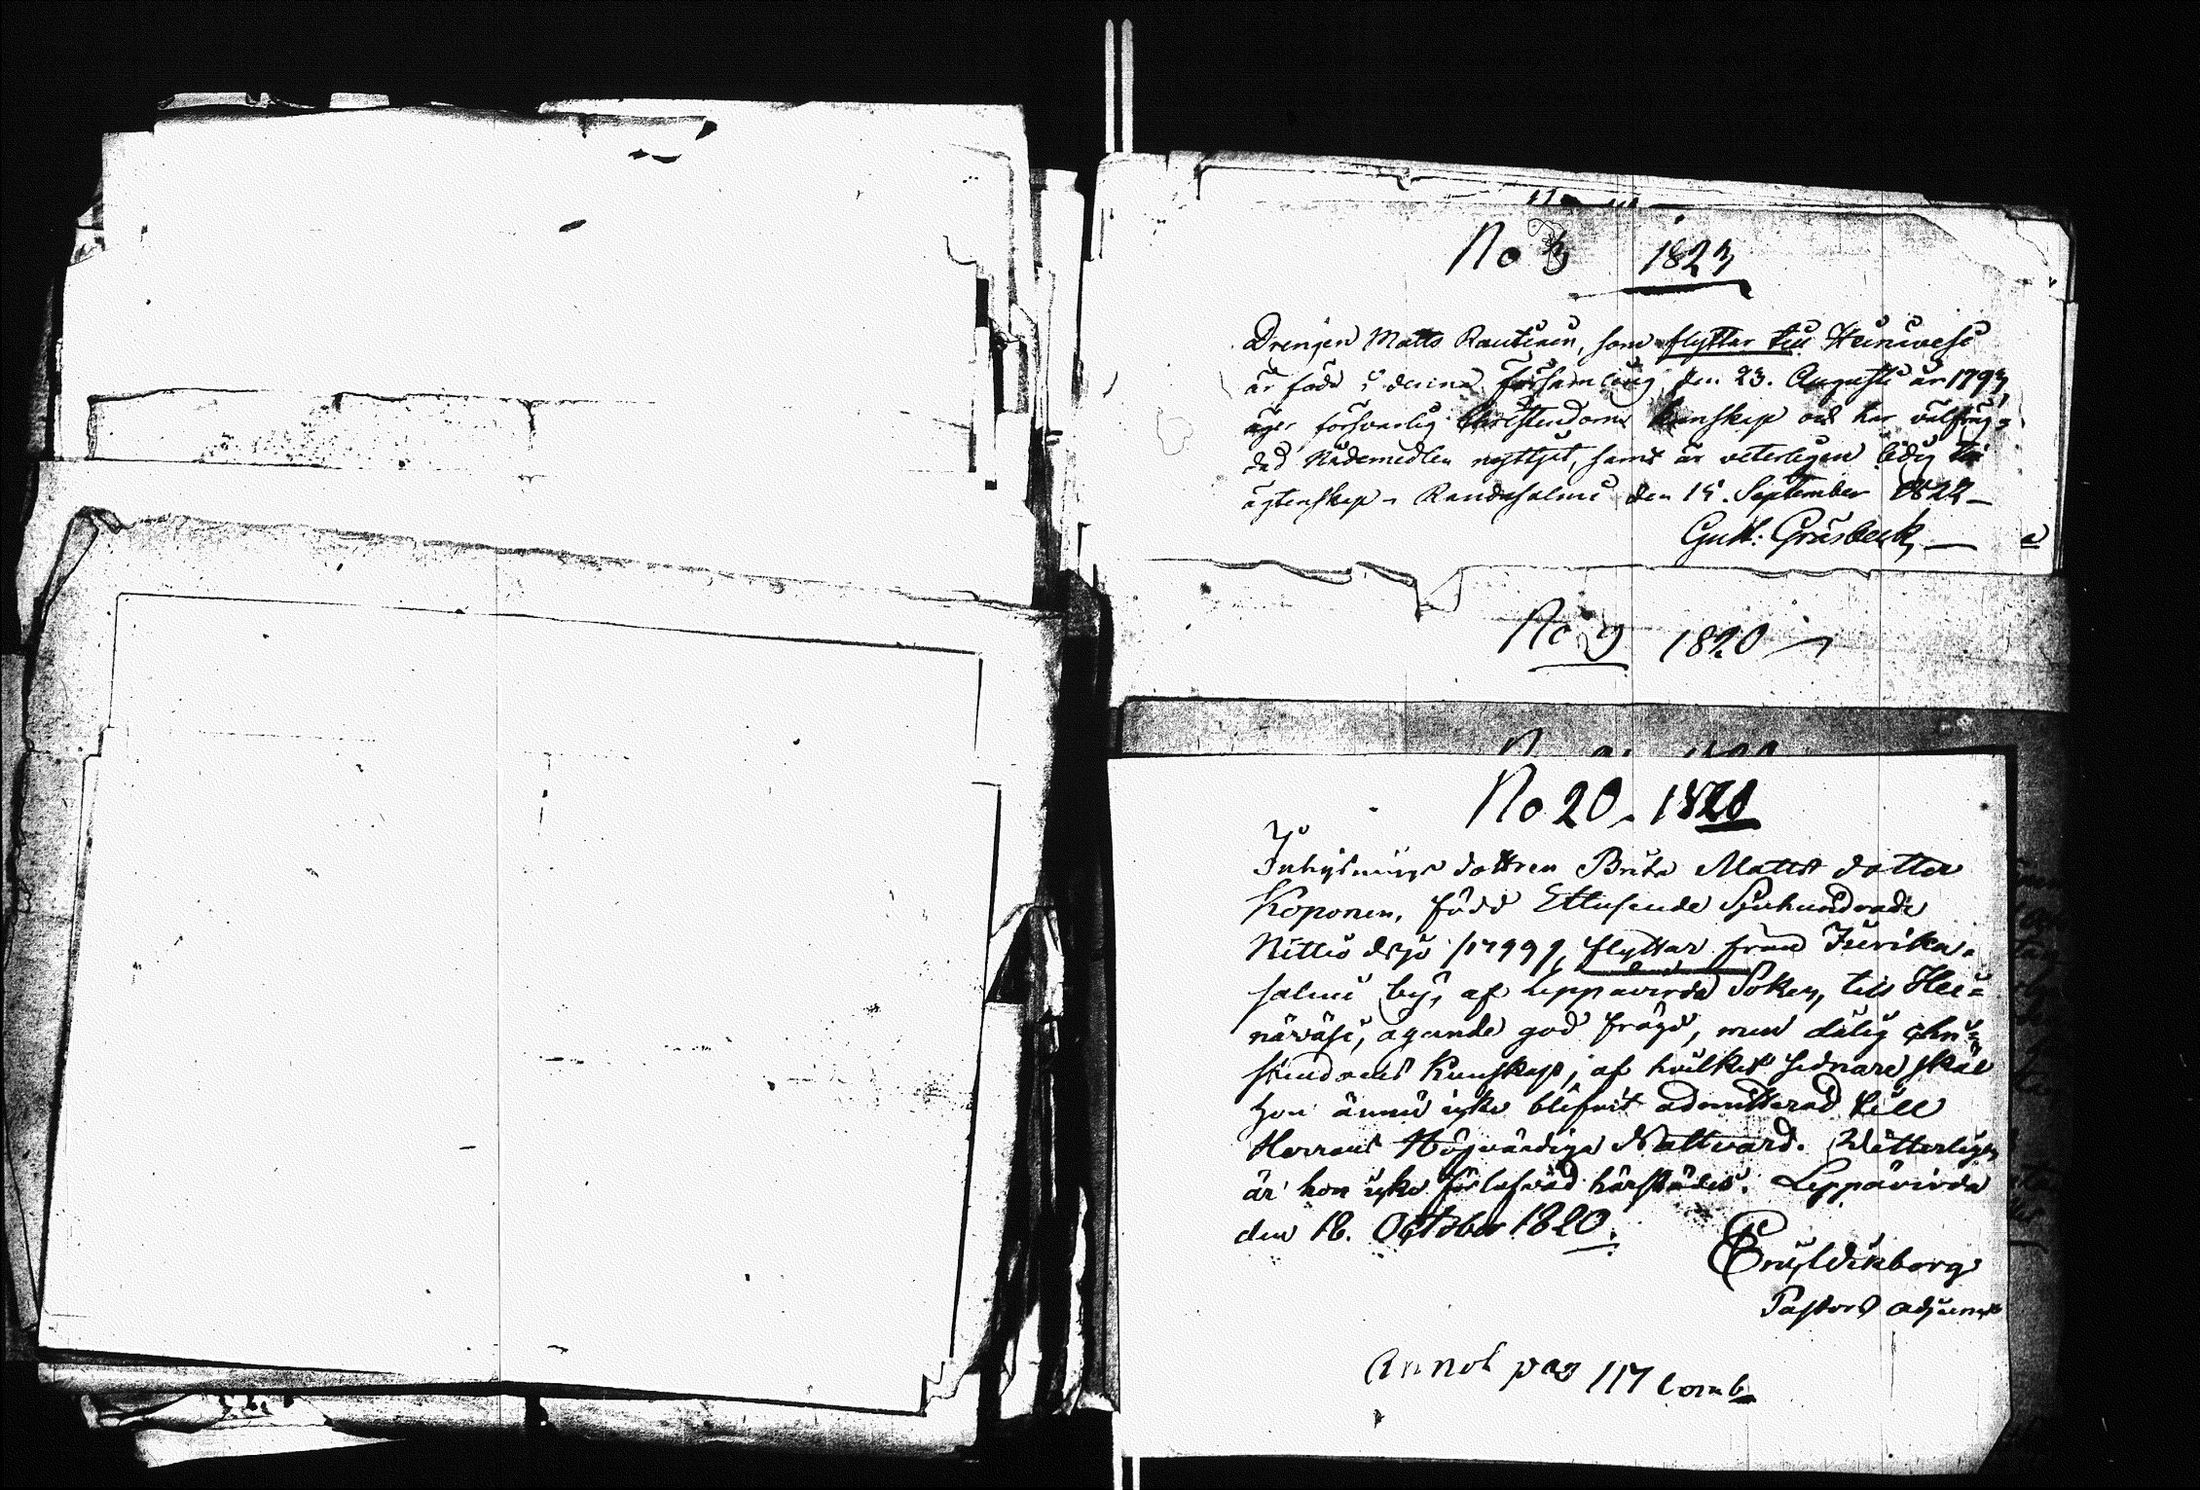 No 3 1823
Drengen Matts Rautiain, som flyttar till Heinäwesi
är född i denna församling den 23. Augusti år 1793,
äger försvarlig Christendoms kunskap och har välfräg-
dad Nådemedlen nyttjat, samt är veterligen ledig till
ägtenskap. Randasalmi den 15. September 1822
Gust: Gråsbeck
No 9 1820
No 20. 1820
Inhysings dottren Brita Matts dotter
Koponen, född Ettusende Sjuhundrade
Nittio
/1799/, flyttar från
salmi by, af Leppävirda Soken, till Hei=
näväsi, agande god frägd, men dålig chri=
stendoms Kunskap; af hvilket sednare skäl
hon ännu icke blifvit admitterad till
Herrans Högvärdiga Nattvard. Wetterligen
är hon icke förlofvad härstädes. Leppävirda
den 18. October 1820.
Pastors adjunct
Annot pag 117 Comb